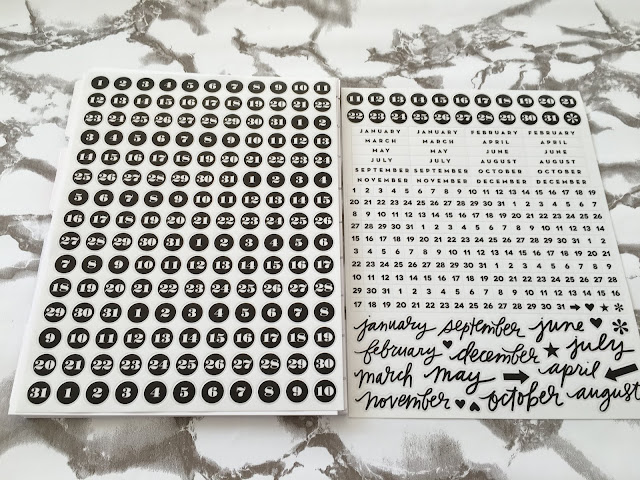 1 2 3 4 5 6 7 8 9 10 11
12 13 14 15 16 17 18 19 20 21 22
23 24 25 26 27 28 29 30 31 1 2
3 4 5 6 7 8 9 10 11 12 13
14 15 16 17 18 19 20 21 22 23 24
25 26 27 28 29 30 31 1 2 3 4
5 6 7 8 9 10 11 12 13 14 15
16 17 18 19 20 21 22 23 24 25 26
27 28 29 30 31 1 2 3 4 5 6
7 8 9 10 11 12 13 14 15 16 17
18 19 20 21 22 23 24 25 26 27 28
29 30 31 1 2 3 4 5 6 7 8
9 10 11 12 13 14 15 16 17 18 19
20 21 22 23 24 25 26 27 28 29 30
31 1 2 3 4 5 6 7 8 9 10
11 12 13 14 15 16 17 18 19 20 21
22 23 24 25 26 27 28 29 30 31 *
JANUARY JANUARY FEBRUARY FEBRUARY
MARCH MARCH APRIL APRIL
MAY MAY JUNE JUNE
JULY JULY AUGUST AUGUST
SEPTEMBER SEPTEMBER OCTOBER OCTOBER
NOVEMBER NOVEMBER DECEMBER DECEMBER
1 2 3 4 5 6 7 8 9 10 11 12 13 14 15 16 17 18 19
20 21 22 23 24 25 26 27 28 29 30 31 1 2 3 4 5 6 7
8 9 10 11 12 13 14 15 16 17 18 19 20 21 22 23 24 25 26
27 28 29 30 31 1 2 3 4 5 6 7 8 9 10 11 12 13 14
15 16 17 18 19 20 21 22 23 24 25 26 27 28 29 30 31 1 2
3 4 5 6 7 8 9 10 11 12 13 14 15 16 17 18 19 20 21
22 23 24 25 26 27 28 29 30 31 1 2 3 4 5 6 7 8 9
10 11 12 13 14 15 16 17 18 19 20 21 22 23 24 25 26 27 28
29 30 31 1 2 3 4 5 6 7 8 9 10 11 12 13 14 15 16
17 18 19 20 21 22 23 24 25 26 27 28 29 30 31 → ♥ ★ *
january september june ♥ *
february ♥ december ★ july
march may → april ←
november ♥ ♠ october august